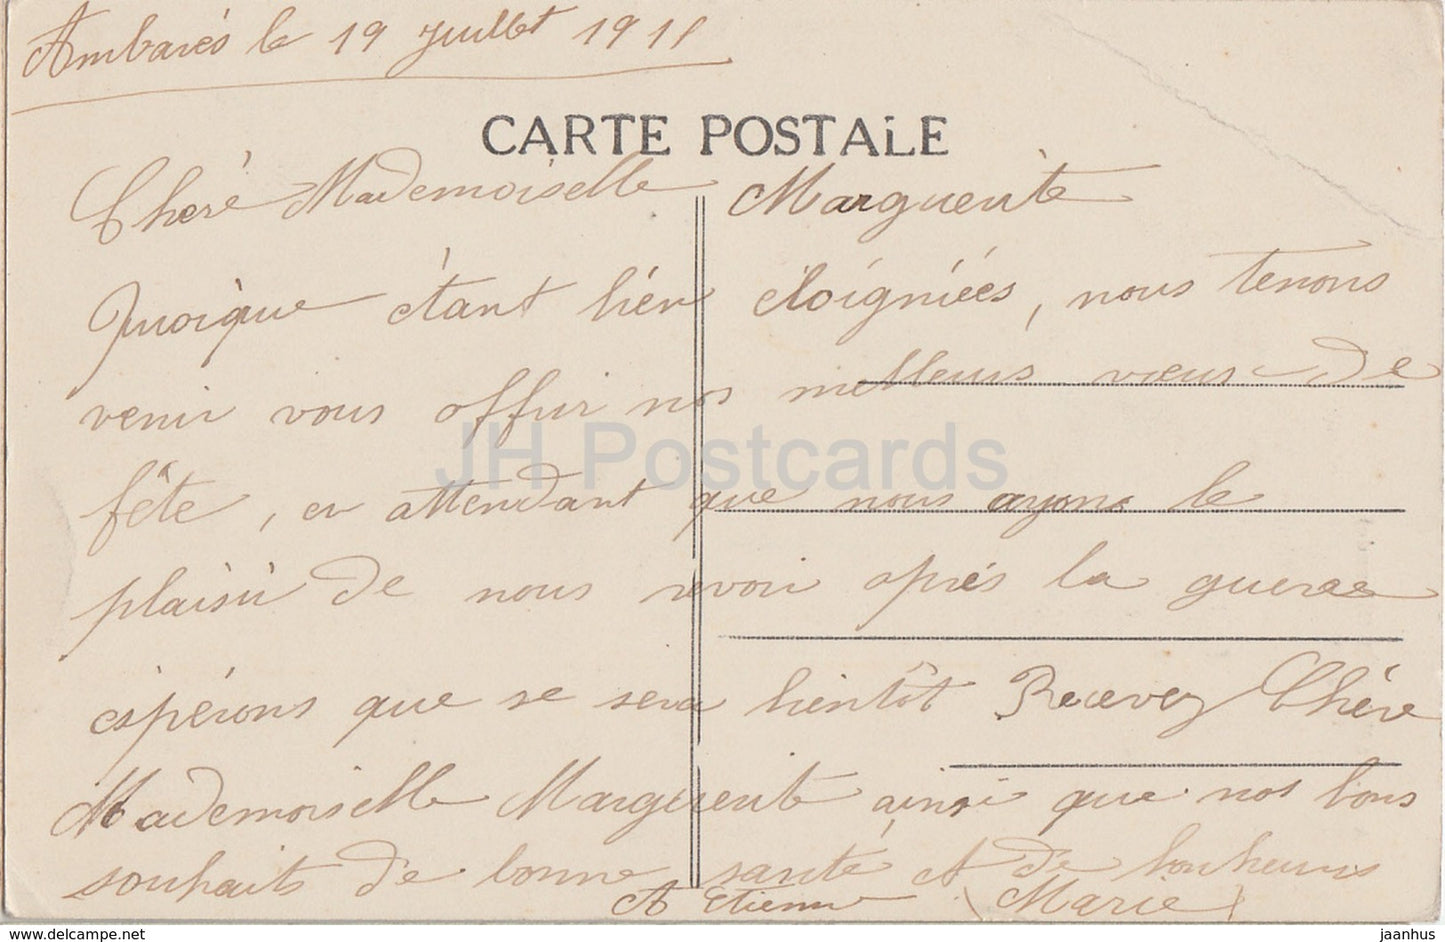 Ambarès le 19 Juillet 1915
CARTE POSTALE
Cheré Mademoiselle Marguerite
Quoique étant bien éloigniéés, nous tenons
venir vous offrir nos meilleurs vœux de
fête, en attendant que nous ayons le
plaisir de nous revoir après la guerre
éspérons que se sera bientôt Recevez Chére
Mademoiselle Marguerite ainsi que nos bons
souhaits de bonne santé et de bonheurs
et Etienne (Marie)
JH Postcards
www.delcampe.net
jaanhus